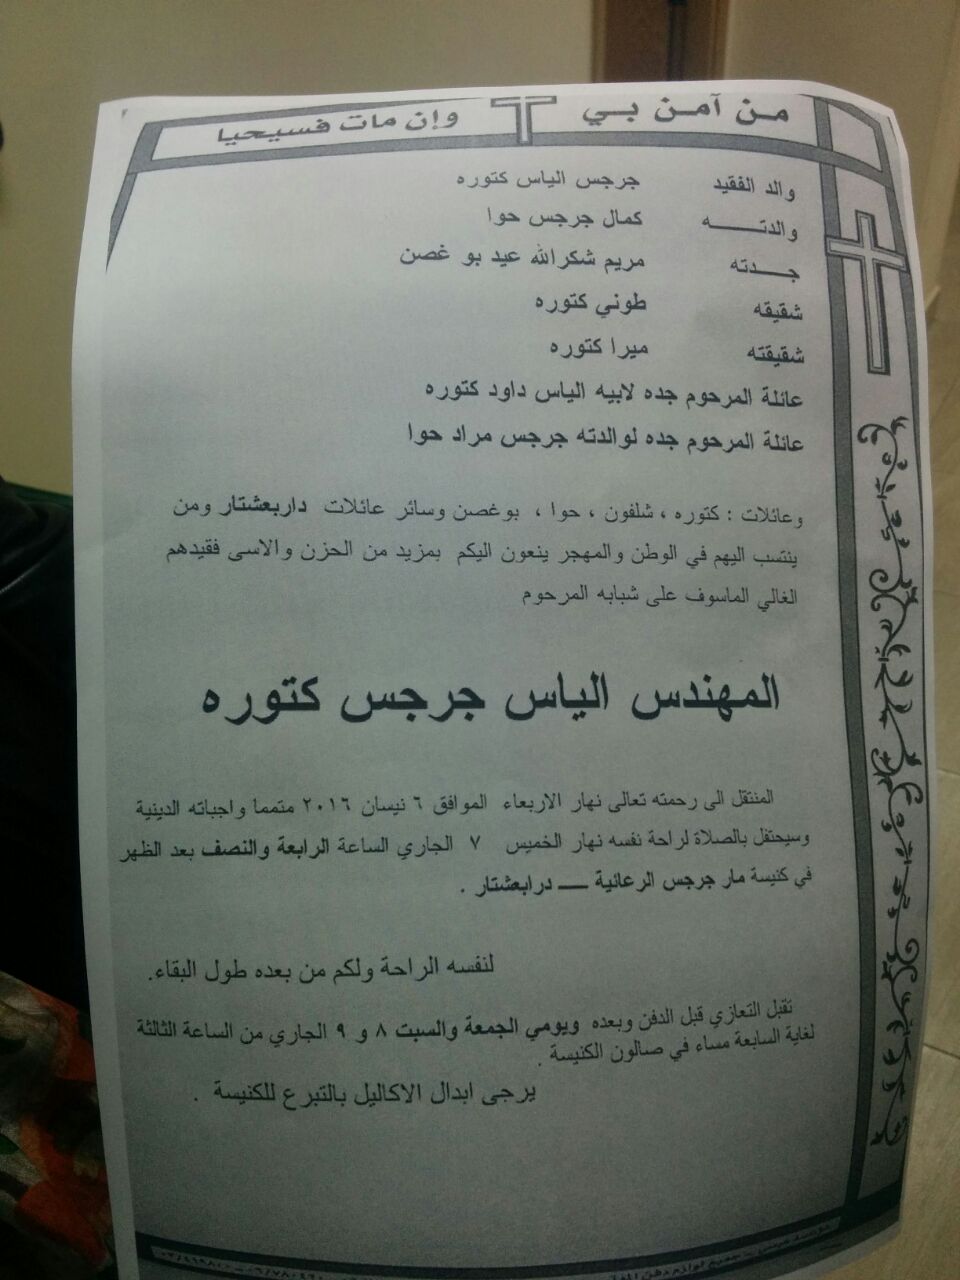 من آمن بي وإن مات فسيحيا
والد الفقيد جرجس الياس كتوره
والدتـــــــه كمال جرجس حوا
جــــدته مريم شكرالله عيد بو غصن
شقيقه طوني كتوره
شقيقته ميرا كتوره
عائلة المرحوم جده لابيه الياس داود كتوره
عائلة المرحوم جده لوالدته جرجس مراد حوا
وعائلات : كتوره ، شلفون ، حوا ، بوغصن وسائر عائلات داربعشتار ومن
ينتسب اليهم في الوطن والمهجر ينعون اليكم بمزيد من الحزن والاسى فقيدهم
الغالي الماسوف على شبابه المرحوم
المهندس الياس جرجس كتوره
المنتقل الى رحمته تعالى نهار الاربعاء الموافق ٦ نيسان ٢٠١٦ متمما واجباته الدينية
وسيحتفل بالصلاة لراحة نفسه نهار الخميس ٧ الجاري الساعة الرابعة والنصف بعد الظهر
في كنيسة مار جرجس الرعائية ــــ درابعشتار .
لنفسه الراحة ولكم من بعده طول البقاء.
تقبل التعازي قبل الدفن وبعده ويومي الجمعة والسبت ٨ و ٩ الجاري من الساعة الثالثة
لغاية السابعة مساء في صالون الكنيسة .
يرجى ابدال الاكاليل بالتبرع للكنيسة .